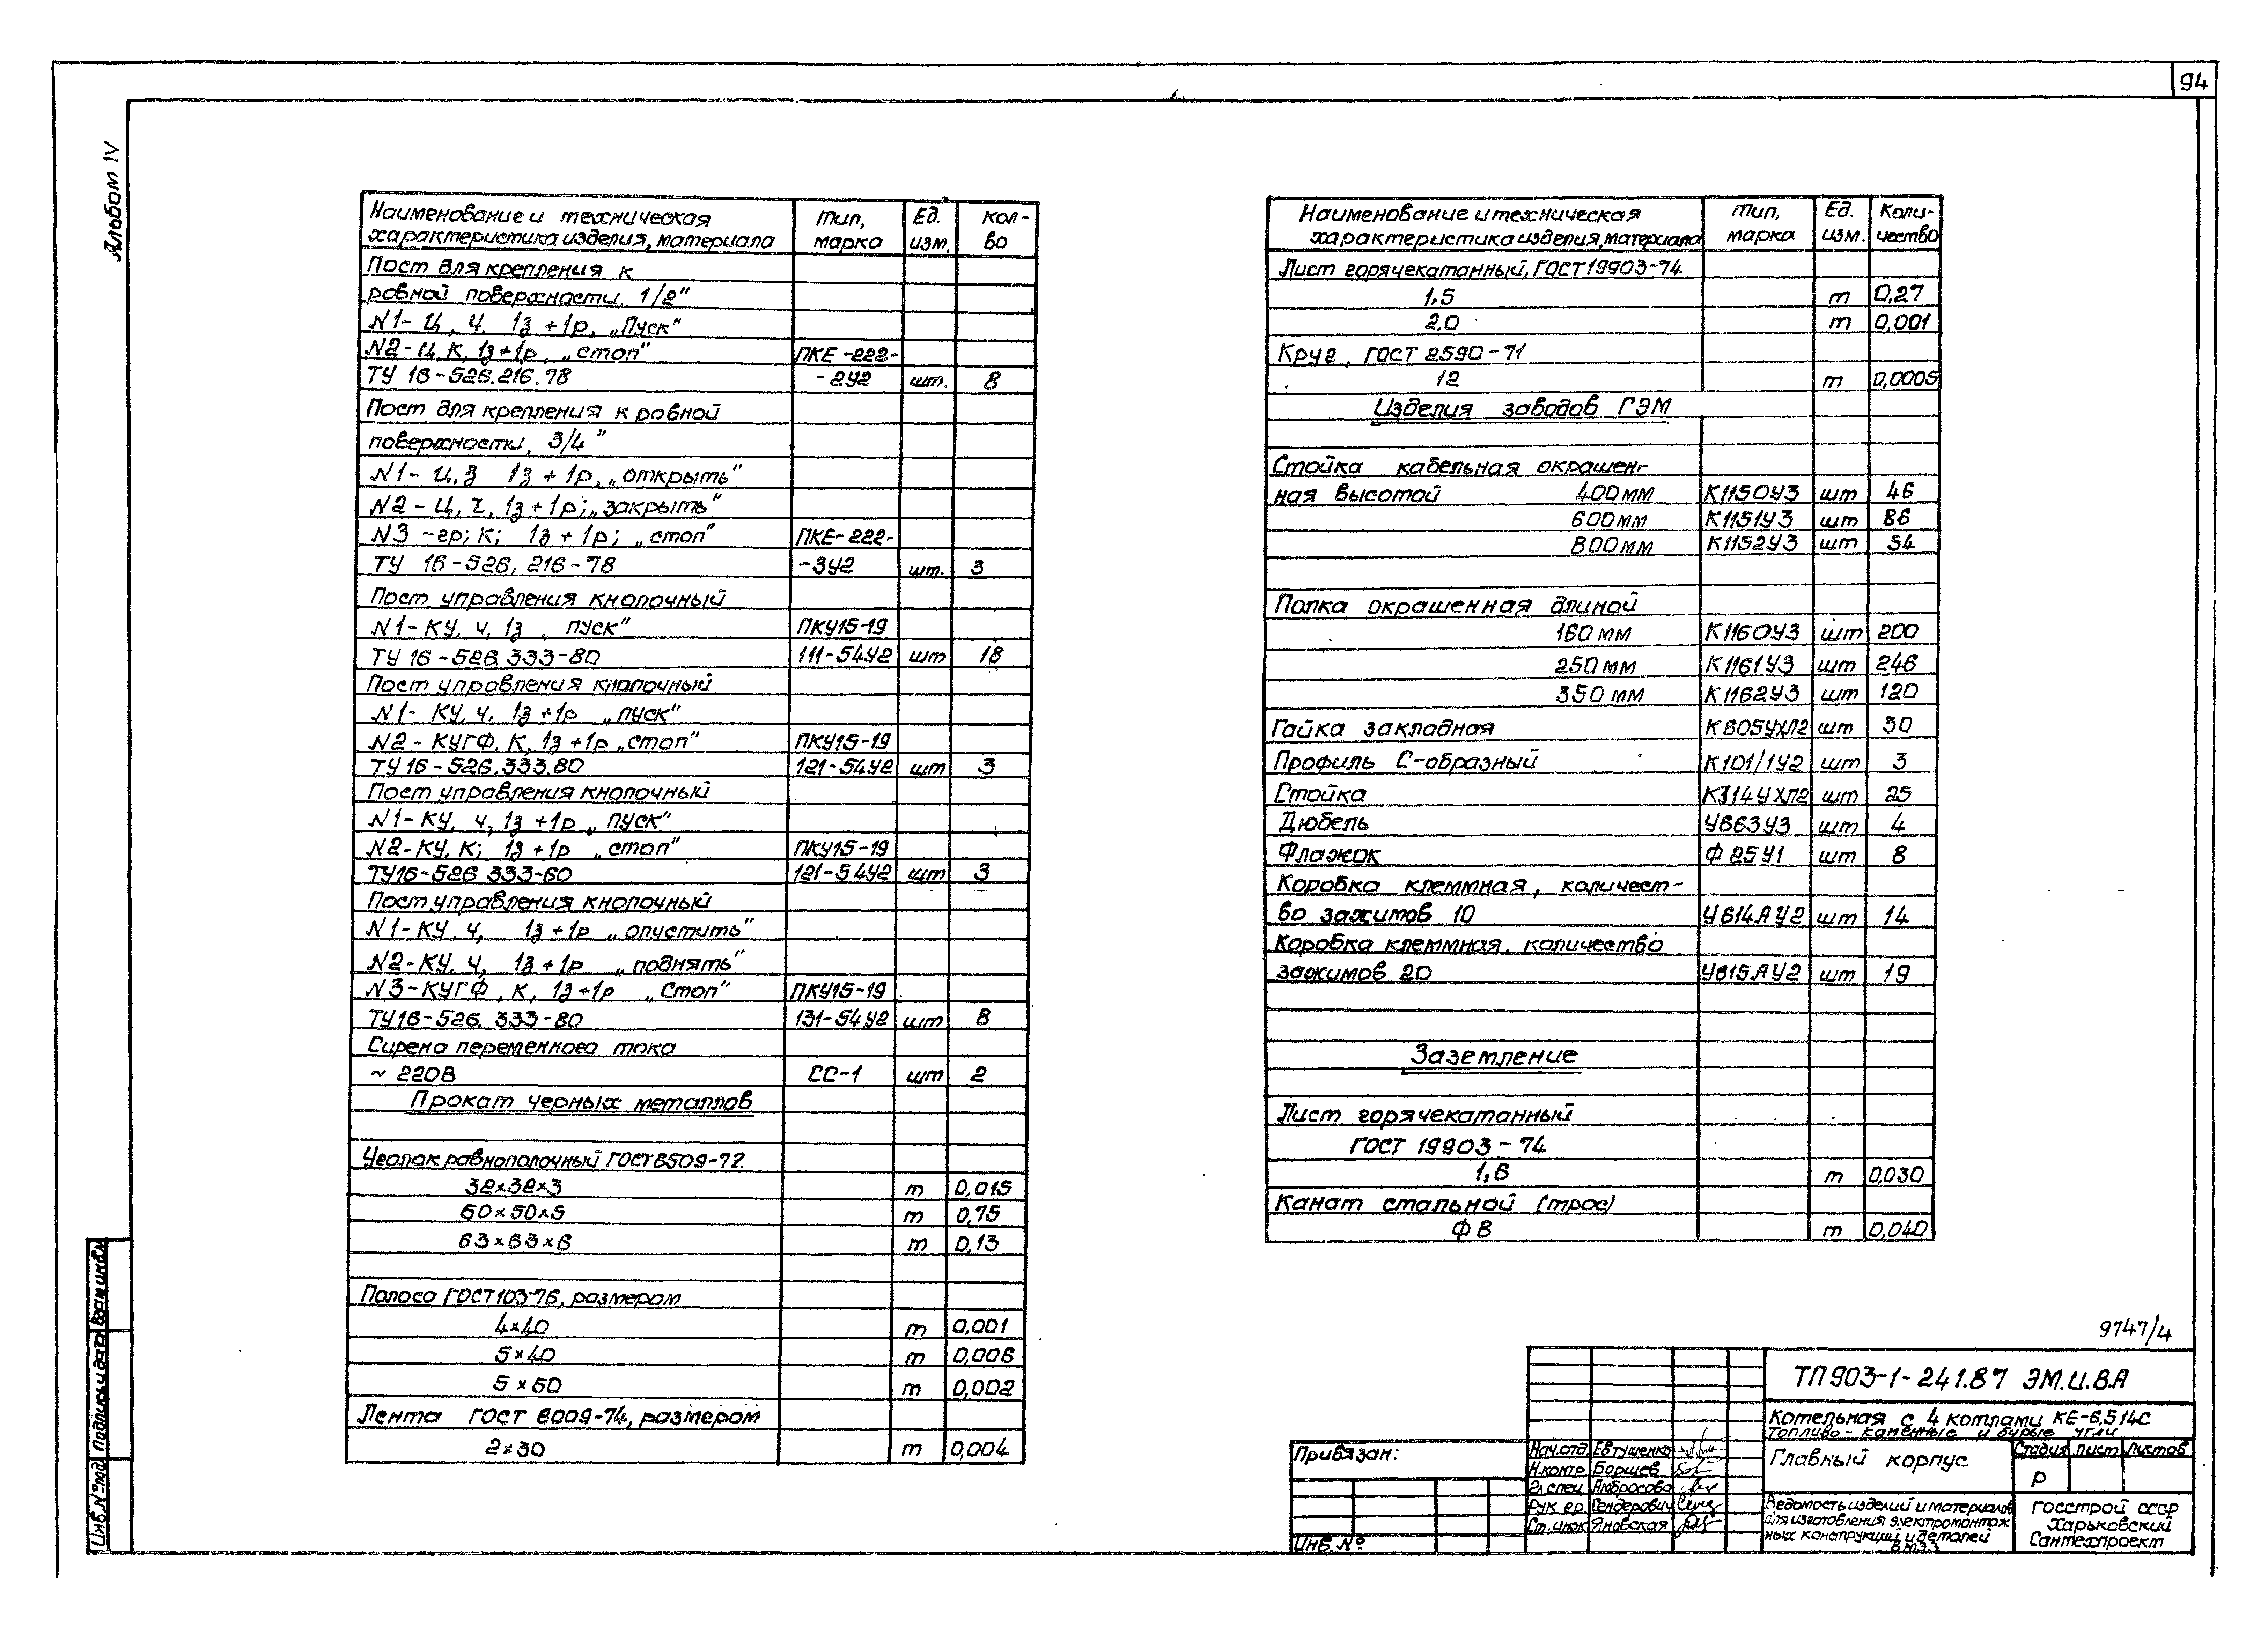 94
Альбом IV
Наименование и техническая характеристика изделия, материала | Тип, марка | Ед. изм. | Кол-во
Пост для крепления к
ровной поверхности, 1/2"
N1- Ц, Ч, 1з +1р, „Пуск"
N2-Ц, К, 1з+1р, „стоп" | ПКЕ-222-
ТУ 16-526.216.78 | -2У2 | шт. | 8
Пост для крепления к ровной
поверхности, 3/4"
N1- Ц,З 1з + 1р, „открыть"
N2 - Ц, Ч, 1з + 1р; „закрыть"
N3 -гр; К; 1з + 1р; „стоп" | ПКЕ-222-
ТУ 16-526, 216-78 | -3У2 | шт. | 3
Пост управления кнопочный
N1-КУ, ч, 1з „ пуск" | ПКУ15-19
ТУ 16-526.333-80 | 111-54У2 | шт | 18
Пост управления кнопочный
N1- КУ, ч, 1з +1р „пуск"
N2 - КУГФ, К, 1з +1р „стоп" | ПКУ15-19
ТУ 16-526.333.80 | 121-54У2 | шт | 3
Пост управления кнопочный
N1-КУ, ч, 1з +1р „ пуск"
N2-КУ, К; 1з +1р „стоп" | ПКУ15-19
ТУ16-526 333-60 | 121-54У2 | шт | 3
Пост управления кнопочный
N1-КУ, ч, 1з+1р „опустить"
N2-КУ, ч, 1з+1р „поднять"
N3-КУГФ, К, 1з+1р „Стоп" | ПКУ15-19
ТУ16-526. 333-80 | 131-54У2 | шт | 8
Сирена переменного тока
~ 220В | СС-1 | шт | 2
Прокат черных металлов
Уголок равнополочный ГОСТ8509-72.
32×32×3 | т | 0,015
50×50×5 | т | 0,75
63×63×6 | т | 0,13
Полоса ГОСТ103-76, размером
4×40 | т | 0,001
5×40 | т | 0,006
5×50 | т | 0,002
Лента ГОСТ 6009-74, размером
2×30 | т | 0,004
Наименование и техническая характеристика изделия, материала | Тип, марка | Ед. изм. | Количество
Лист горячекатанный, ГОСТ19903-74
1,5 | т | 0,27
2,0 | т | 0,001
Круг, ГОСТ 2590-71
12 | т | 0,0005
Изделия заводов ГЭМ
Стойка кабельная окрашен-
ная высотой 400мм | К1150У3 | шт | 46
600мм | К1151У3 | шт | 86
800мм | К1152У3 | шт | 54
Полка окрашенная длиной
160 мм | К1160У3 | шт | 200
250 мм | К1161У3 | шт | 246
350 мм | К1162У3 | шт | 120
Гайка закладная | К605УХЛ2 | шт | 30
Профиль С-образный | К101/1У2 | шт | 3
Стойка | К314УХЛ2 | шт | 25
Дюбель | У663У3 | шт | 4
Флажок | Ф25У1 | шт | 8
Коробка клеммная, количест-
во зажимов 10 | У614АУ2 | шт | 14
Коробка клеммная, количество
зажимов 20 | У615АУ2 | шт | 19
Заземление
Лист горячекатанный
ГОСТ 19903-74
1,6 | т | 0,030
Канат стальной (трос)
Ф 8 | т | 0,040
9747/4
ТП903-1-241.87 ЭМ.И.ВА
Котельная с 4 котлами КЕ-6,5 14С
Топливо - каменные и бурые угли
Главный корпус
Стадия | Лист | Листов
Р
Ведомость изделий и материалов
для изготовления электромонтаж
ных конструкций и деталей
в МЭЗ
Госстрой СССР
Харьковский
Сантехпроект
Нач.отд. Евтушенко
Н.контр. Борщев
Гл.спец. Амбросова
Рук.гр. Гендерович
Ст.инж Яновская
Привязан:
Инв. №
Инв.№под Подпись и дата Взам.инв.№